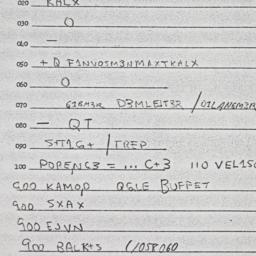 020 KALX
030 O
040 —
050 + Q F1NVOSM3NMAXTKALX
060 O
070 61BM3R D3MLEIT3R /OILANGM3R
080 — QT
090 STT1G+ /TREP
100 POPENC3 = ... C+3 110 VEL1SC
900 KAMOD QGLE BUFFET
900 SXAX
900 EJVN
900 BALK+S (/058060